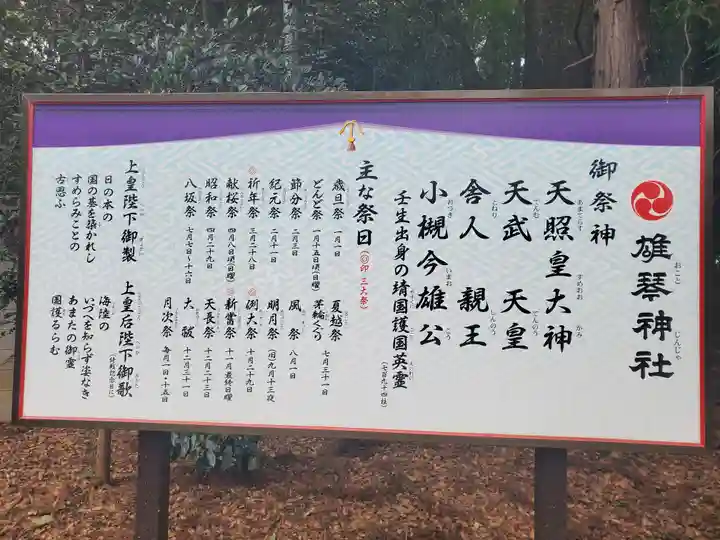 雄琴神社
おごと じんじゃ
御祭神
天照皇大神
あまてらす すめおお かみ
天武天皇
てんむ てんのう
舎人親王
とねり しんのう
小槻今雄公
おつき いまお こう
壬生出身の靖国護国英霊(七百九十四柱)
主な祭日(◎印 三大祭)
歳旦祭 一月一日
どんど祭 一月十五日頃(日曜)
節分祭 二月三日
紀元祭 二月十一日
◎祈年祭 三月二十八日
献桜祭 四月八日頃(日曜)
昭和祭 四月二十九日
八坂祭 七月七日〜十六日
夏越祭
茅輪くぐり 七月三十一日
風祭 八月一日
明月祭 (旧)九月十三夜
◎例大祭 十月二十九日
◎新嘗祭 十一月最終日曜
天長祭 十二月二十三日
大祓 十二月三十一日
月次祭 毎月一日・十五日
上皇陛下御製
日の本の
国の基を築かれし
すめらみことの
古思ふ
上皇后陛下御歌
海陸の
いづへを知らず姿なき
あまたの御霊
国護るらむ